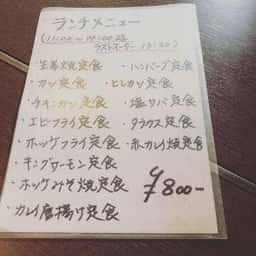 ランチメニュー
ラストオーダー
・生姜焼定食
・ハンバーグ定食
・カツ定食
・ヒレカツ定食
・チキンカツ定食
・塩サバ定食
・エビフライ定食
・ホッケフライ定食
・赤カレイ焼定食
・キングサーモン定食
・ホッケみそ焼定食
¥800-
・カレイ唐揚げ定食